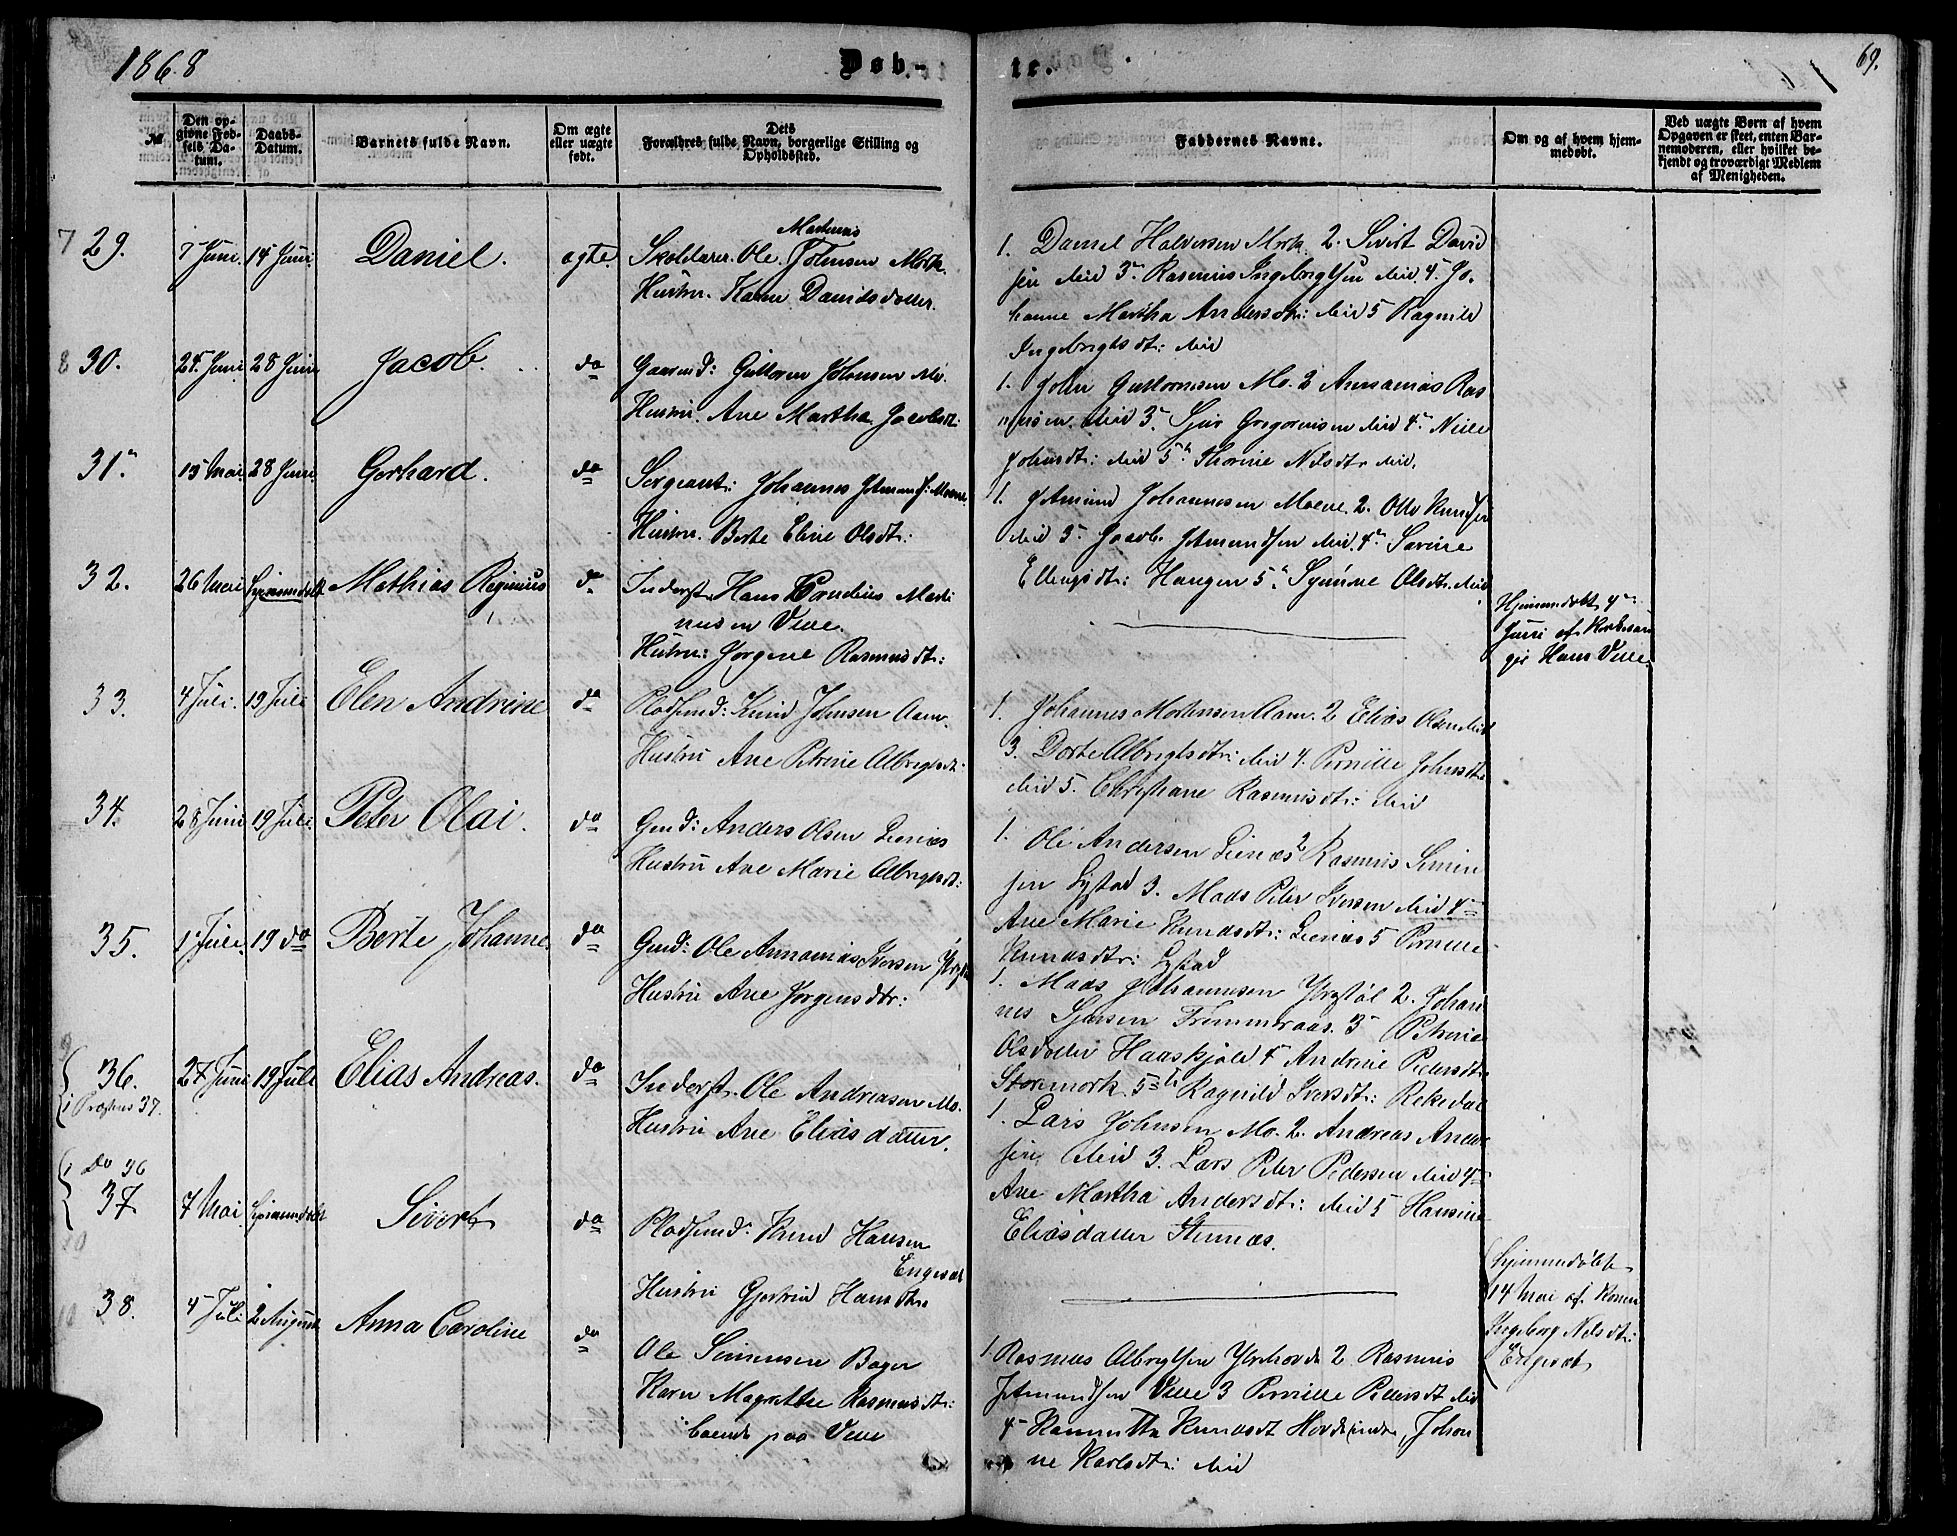 1868
Døb-
te.
69.
№
Den op-
givne Fød-
sels Da-
tum.
Daabs-
Datum.
Barnets fulde Navn.
Om ægte
eller uægte
født.
Dets
Forældres fulde Navn, borgerlige Stilling og
Opholdssted.
Faddernes Navne.
Om og af hvem hjem-
medøbt.
Ved uægte Børn af hvem
Opgaven er skeet, enten Bar-
nemoderen, eller hvilket be-
kjendt og troværdigt Medlem
af Menigheden.
7 29. 7 Juni. 14 Juni. Daniel. ægte.
Martinus
Skolelærer. Ole Johnsen Mork.
Hustru. Karen Davidsdatter.
1. Daniel Halversen Mork 2. Sivert David
sen ibid 3. Rasmus Ingebrigtsen ibid 4. Jo-
hanne Martha Andersdtr: ibid 5 Ragnild
Ingebrigtsdtr: ibid
8 30. 24. Juni 28 Juni Jacob. do
Gaarmd: Guttorm Johnsen Mo.
Hustru. Ane Martha Jacobsdt:
1. John Guttormsen Mo. 2 Annanias Ras
musen ibid 3. Sjur Gregoriusen ibid 4.
Johnsdtr: ibid 5. Thorine Nilsdtr ibid.
31. 15 Mai. 28 Juni. Gerhard. do
Sergeant: Johannes Amunds: Moene
Hustru. Berte Eline Olsdtr:
1. Amund Johannesen Moene. 2. Otto Knudsen
ibid 3. Jacob Amundsen ibid. 4. Sevrine
Ellingsdtr: Haugen 5. Synnøve Olsdtr. ibid
32. 26 Mai Hjemmedøbt Mathias Reginius do
Inderst Hans Cornelius Marti
nusen Velle.
Hustru: Jørgine Rasmusdtr:
Hjemmedøbt 4
Juni af Kirkesan
ger Hans Velle
33. 4 Juli. 19 Juli Elen Andrine do
Pladsmd: Knud Johnsen Aam.
Hustru Ane Petrine Albregtsdt:
1. Johannes Mortensen Aam. 2 Elias Olsen ibid
3. Dorte Albregtsdtr: ibid 4. Pernille Johnsdtr
ibid 5. Christiane Rasmusdtr: ibid
34. 28 Juni 19 Juli. Peter Olai. do
Gmd: Anders Olsen Lienæs
Hustru Ane Marie Albregtsdt:
1. Ole Andersen Lienæs 2 Rasmus Simon
sen Systad 3. Mads Peter Iversen ibid 4
Ane Marie Knudsdtr: Lienæs 5 Pernille
Knudsdtr: Systad
35. 1 Juli. 19 do Berte Johanne. do
Gmd: Ole Annanias Iversen
Hustru Ane Jørgensdtr:
1. Mads Johannesen Yrstøl 2. Johan
nes Sjursen Frammeraas. 3 Petrine
Olsdatter Haaskjold 4 Andrine Pedersdtr
Storemork. 5 Ragnild Iversdtr: Rekedal
36. 27 Juni 19 Juli Elias Andreas. do
Præstens 37.
Inderst. Ole Andreasen Mo.
Hustru Ane Eliasdatter.
1. Lars Johnsen Mo. 2. Andreas Ander
sen ibid 3. Lars Peter Pedersen ibid 4
Ane Martha Andersdtr: ibid 5 Hansine
Eliasdatter Steinnæs.
Do 36
37. 7 Mai Hjemmedøbt Sivert do
Pladsmd: Knud Hansen
Engeset
Hustru Gjertrud Hansdtr
Hjemmedøbt
14 Mai af Konen
Ingeborg Nilsdtr:
Engeset
38. 4 Juli 2 August Anna Caroline do
Ole Simensen Bager
Karen Magrethe Rasmusdtr:
boende paa Velle
1. Rasmus Albregtsen Yttrehovde 2. Rasmus
Amundsen Velle 3 Pernille Pedersdt ibid
4 Knudsdt Hovde indre, Johan
ne Karlsdtr: ibid